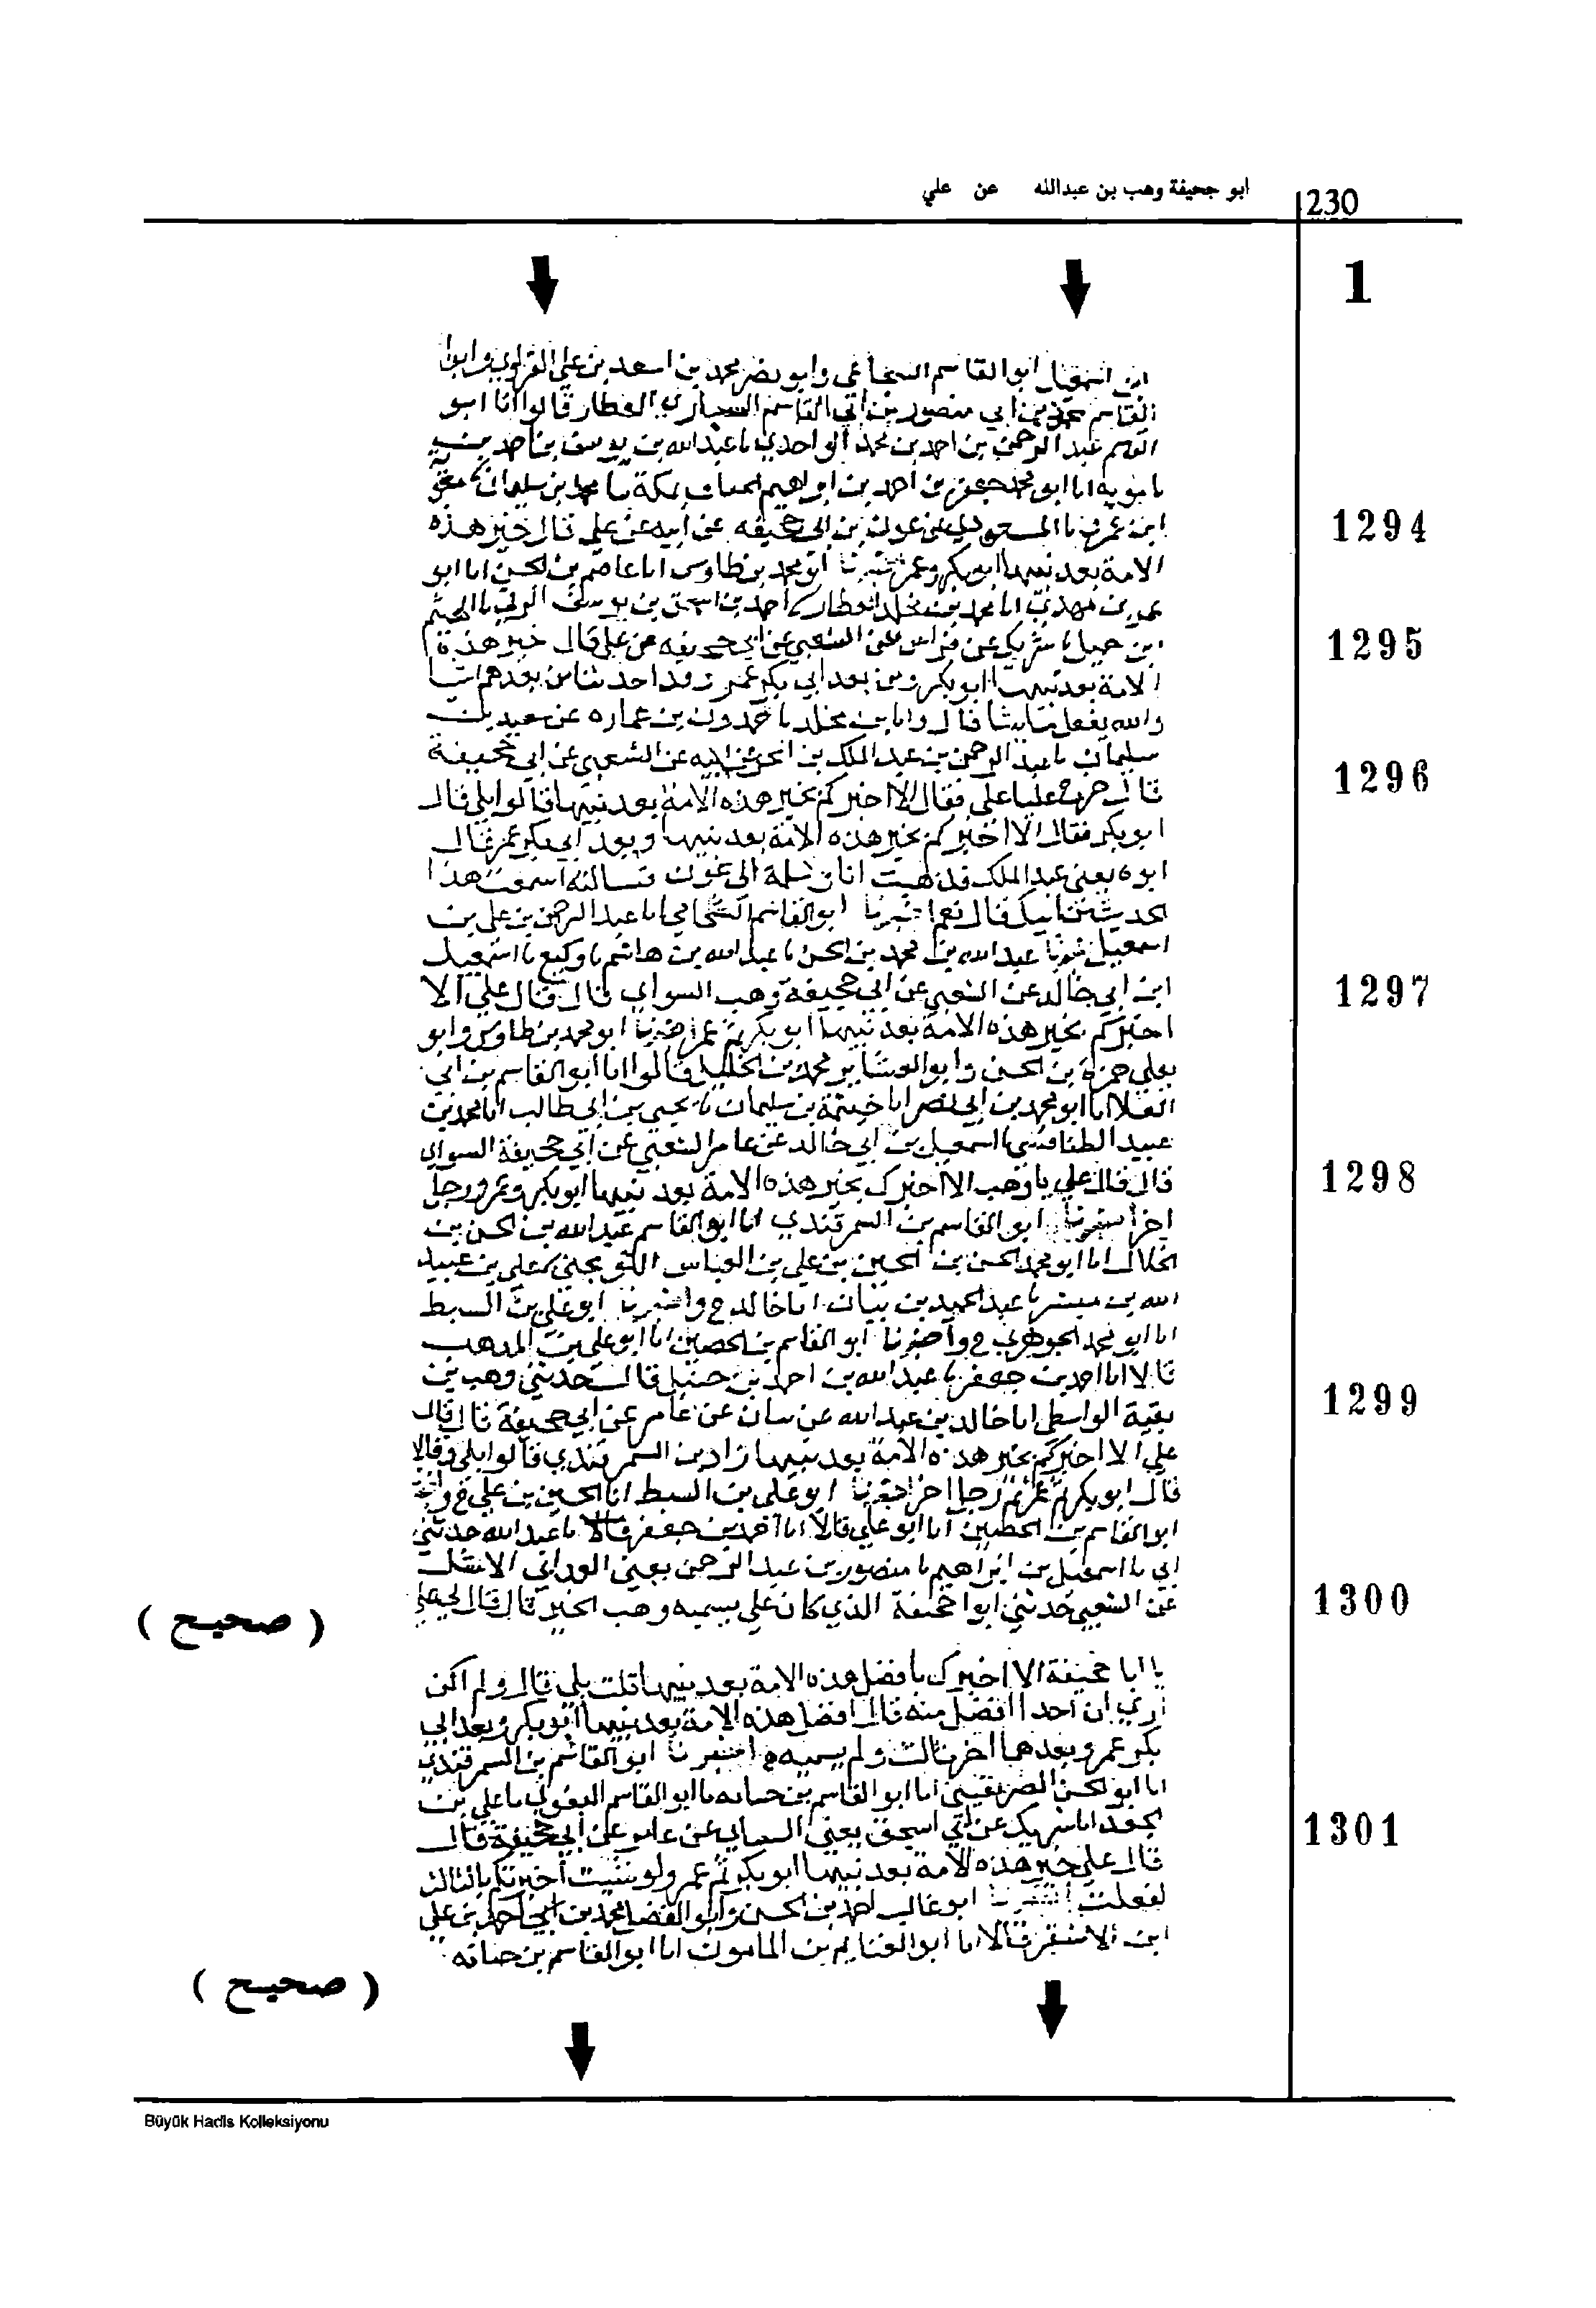 230
ابو جحيفة وهب بن عبدالله عن علي
1
ابن اسمعيل ابو القاسم الشجاعي وابو نصر محمد بن اسعد بن علي وابو
القاسم بن ابي منصور بن ابي القاسم العطار قالوا انا ابو
القسم عبد الرحمن بن احمد بن محمد الواحدي نا عبد الله بن يوسف بن احمد بن
بابويه انا ابو محمد جعفر بن احمد بن ابراهيم بمكة نا محمد بن سليمان
1294
ابن عمر نا المسعودي عن عون بن ابي جحيفه عن ابيه عن علي قال خير هذه
الامة بعد نبيها ابو بكر وعمر اخبرنا ابو محمد بن طاوس انا عاصم بن الحسن انا ابو
عمر بن مهدي انا محمد بن مخلد العطار نا احمد بن اسحق بن يوسف الرقي نا الهيثم
1295
بن جميل نا شريك عن فراس عن الشعبي عن ابي جحيفه عن علي قال خير هذه
الامة بعد نبيها ابو بكر ومن بعد ابي بكر عمر
والله يفعل ما يشا قال وانا بن مخلد نا حمدون بن عماره عن سعيد بن
سليمان نا عبد الرحمن بن عبد الملك بن ابجر عن ابيه عن الشعبي عن ابي جحيفة
1296
قال علينا علي فقال الا اخبركم بخير هذه الامة بعد نبيها قالوا بلى قال
ابو بكر فقال الا اخبركم بخير هذه الامة بعد نبيها وبعد ابي بكر عمر قال
ابوه يعني عبد الملك فذهبت انا الى عون فسالته اسمعت هذا
الحديث من ابيك قال نعم اخبرنا ابو القاسم الشحامي انا عبد الرحمن بن علي بن
اسمعيل عبد الله بن محمد بن الحسن نا عبد الله بن هاشم نا وكيع نا اسمعيل
1297
ابن ابي خالد عن الشعبي عن ابي جحيفة وهب السواي قال قال علي الا
اخبركم بخير هذه الامة بعد نبيها ابو بكر ثم عمر اخبرنا ابو محمد بن طاوس وابو
يعلي حمزة بن الحسن وابو العشاير محمد بن الخليل قالوا انا ابو القاسم بن ابي
العلا انا ابو محمد بن ابي نصر انا خيثمة بن سليمان نا يحيى بن ابي طالب انا محمد بن
عبيد الطنافسي نا اسمعيل بن ابي خالد عن عامر الشعبي عن ابي جحيفة السواي
1298
قال قال علي يا وهب الا اخبرك بخير هذه الامة بعد نبيها ابو بكر وعمر ورجل
اخر اخبرنا ابو القاسم بن السمرقندي انا ابو القاسم عبد الله بن الحسن بن
الخلال انا ابو محمد الحسن بن الحسين بن علي بن العباس النوبختي نا علي بن عبيد
الله بن مبشر نا عبد الحميد بن بيان انا خالد ح واخبرنا ابو علي بن السبط
انا ابو محمد الجوهري ح واخبرنا ابو القاسم بن الحصين انا ابو علي بن المذهب
قالا انا احمد بن جعفر نا عبد الله بن احمد بن حنبل قال حدثني وهب بن
1299
بقية الواسطي انا خالد بن عبد الله عن بيان عن عامر عن ابي جحيفة قال قال
علي الا اخبركم بخير هذه الامة بعد نبيها زاد بن السمرقندي قالوا بلى وقالا
قال ابو بكر ثم عمر ثم رجل اخر اخبرنا ابو علي بن السبط انا الحسن بن علي ح وانا
ابو القاسم بن الحصين انا ابو علي قالا انا احمد بن جعفر قالا نا عبد الله حدثني
ابي نا اسمعيل بن ابراهيم نا منصور بن عبد الرحمن يعني الغداني الاشل
1300
عن الشعبي حدثني ابو جحيفة الذي كان علي يسميه وهب الخير قال قال لي علي
( صحيح )
يا ابا جحيفة الا اخبرك بافضل هذه الامة بعد نبيها قلت بلى قال ولم اكن
اري ان احدا افضل منه قال افضل هذه الامة بعد نبيها ابو بكر وبعد ابي
بكر عمر وبعدهما اخر ثالث ولم يسميه ح اخبرنا ابو القاسم بن السمرقندي
انا ابو الحسن الصريفيني انا ابو القاسم بن حبابه نا ابو القاسم البغوي نا علي بن
1301
الجعد انا شريك عن ابي اسحق يعني الشيباني عن عامر عن ابي جحيفة قال
قال علي خير هذه الامة بعد نبيها ابو بكر ثم عمر ولو شئت اخبرتكم بالثالث
لفعلت اخبرنا ابو غالب احمد بن الحسن وابو الفضل محمد بن احمد بن علي
ابن الاشقر قالا انا ابو الغنايم بن المامون انا ابو القاسم بن حبابه
( صحيح )
Büyük Hadis Kolleksiyonu